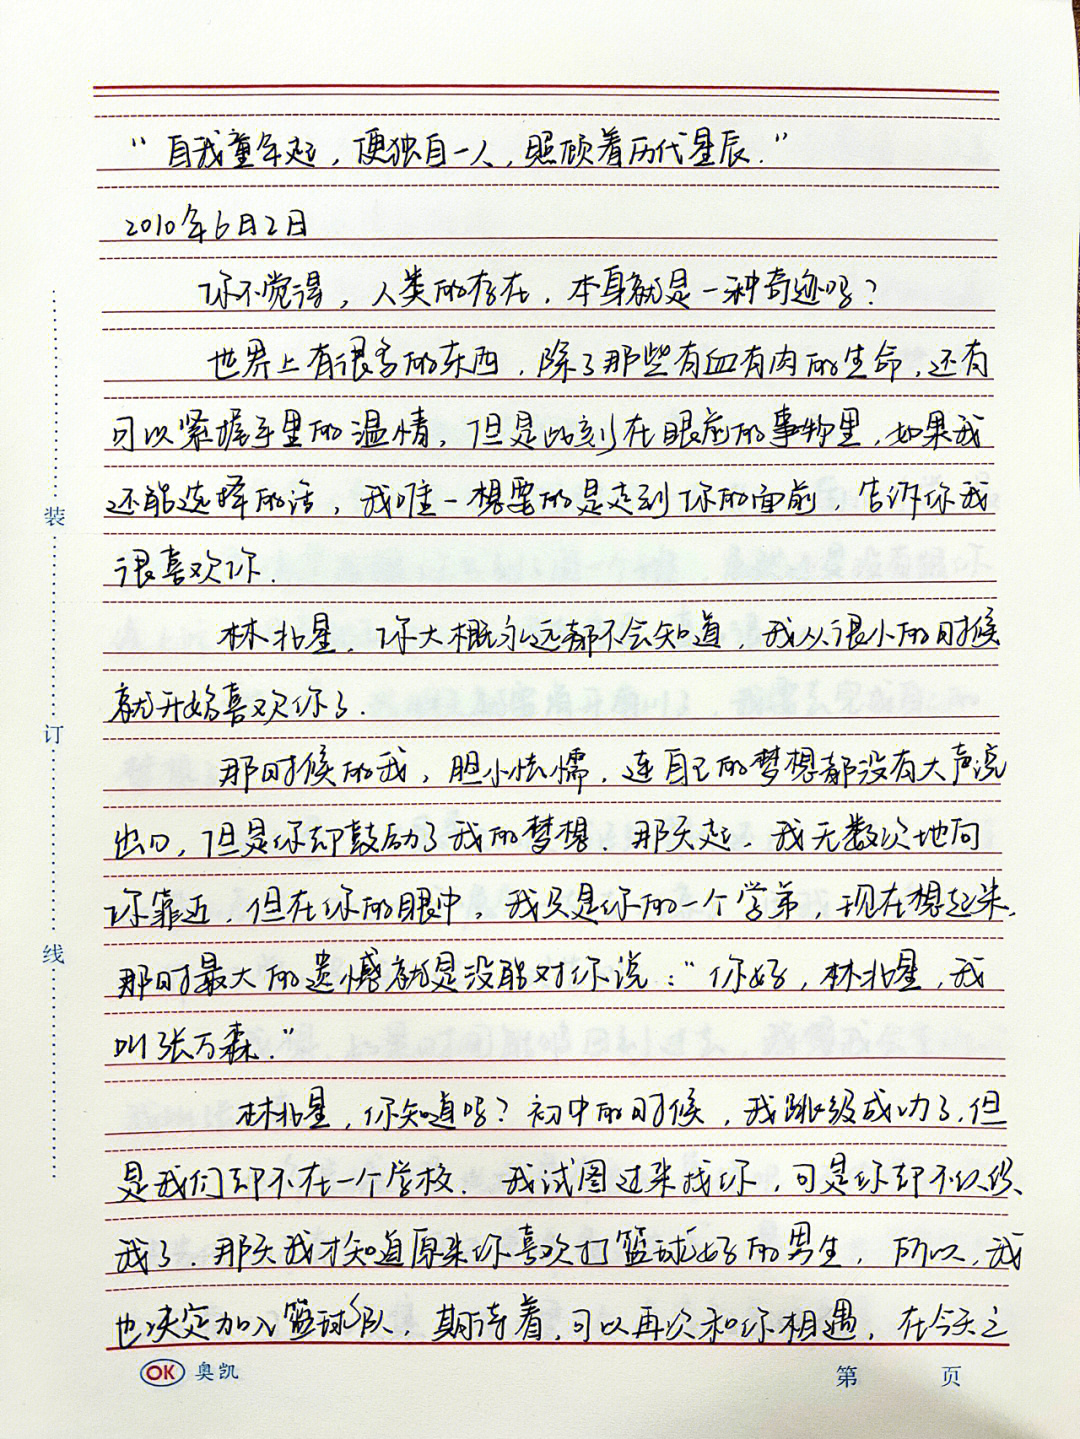 “自我童年起，便独自一人，照顾着历代星辰.”
2010年6月2日
你不觉得，人类的存在，本身就是一种奇迹吗？
世界上有很多的东西，除了那些有血有肉的生命，还有
可以紧握手里的温情，但是此刻在眼前的事物里，如果我
还能选择的话，我唯一想要的是走到你的面前，告诉你我
很喜欢你.
林北星，你大概永远都不会知道，我从很小的时候
就开始喜欢你了.
那时候的我，胆小怯懦，连自己的梦想都没有大声说
出口，但是你却鼓励了我的梦想.那天起.我无数次地向
你靠近，但在你的眼中，我只是你的一个学弟，现在想起来，
那时最大的遗憾就是没能对你说：“你好，林北星，我
叫张万森.”
林北星，你知道吗？初中的时候，我跳级成功了，但
是我们却不在一个学校.我试图过来找你，可是你却不认识
我了.那天我才知道原来你喜欢打篮球好的男生，所以，我
也决定加入篮球队，期待着，可以再次和你相遇，在今天之
装
订
线
OK 奥凯
第 页